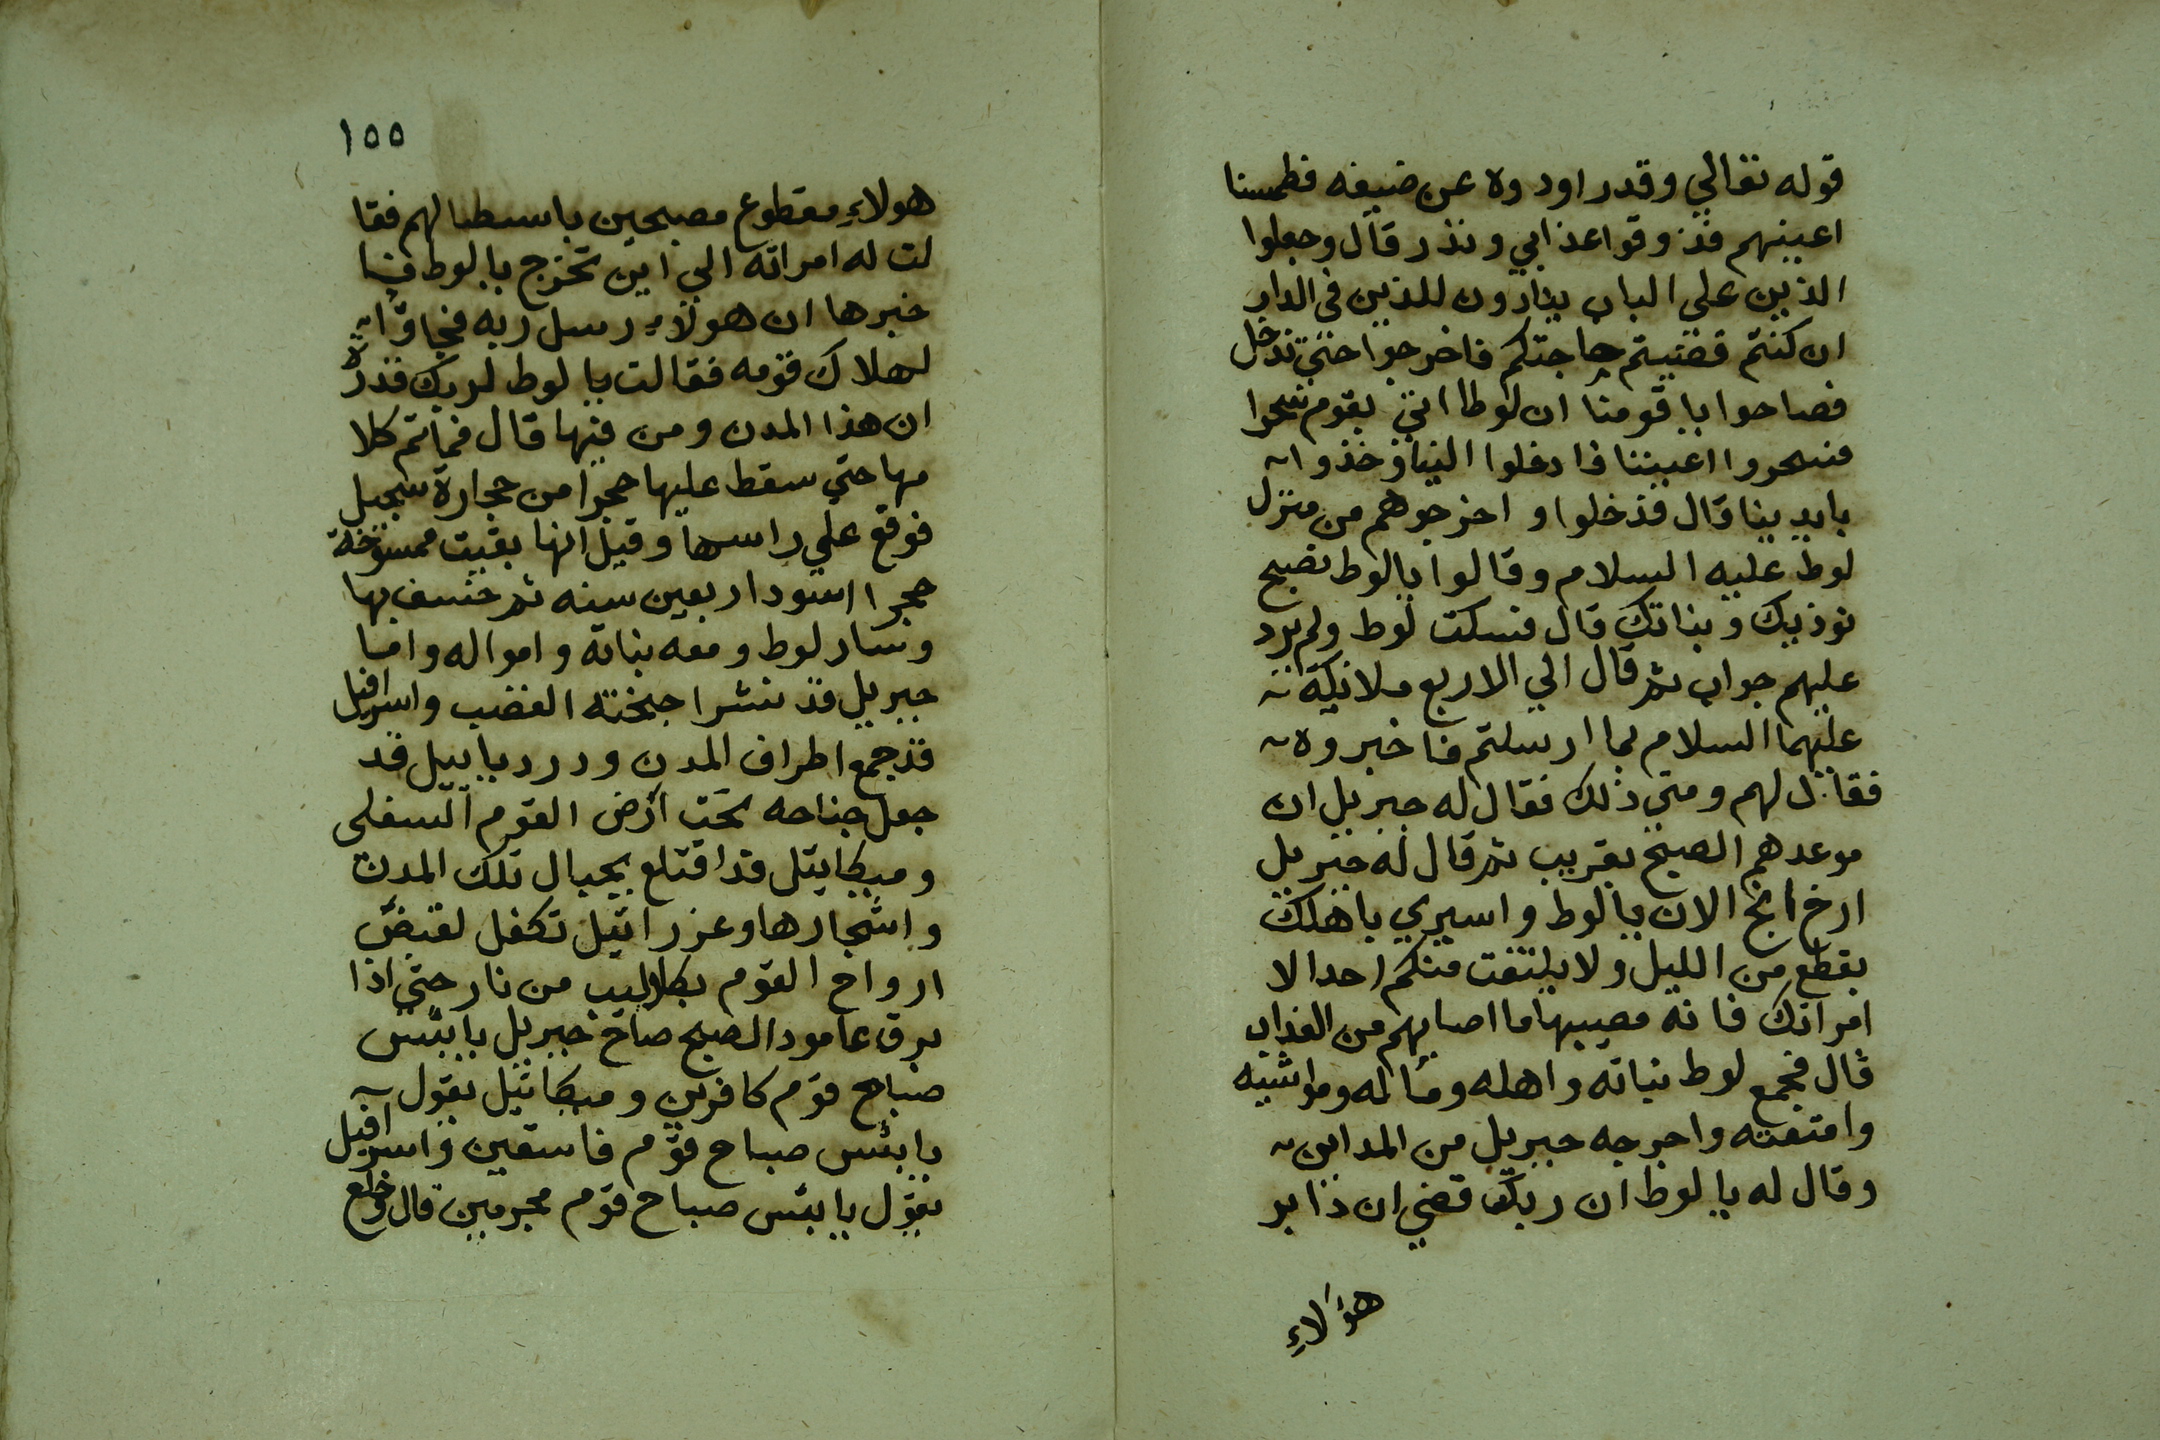 قوله تعالي وقد راودوه عن ضيفه فطمسنا
اعينهم فذوقوا عذابي ونذر قال وجعلوا
الذين علي الباب ينادون للذين في الدار
ان كنتم قضيتم حاجتكم فاخرجوا حتي ندخل
فصاحوا يا قومنا ان لوطا اتي بقوم سحرا
فسحروا اعيننا فادخلوا الينا وخذوا
بايدينا قال فدخلوا واخرجوهم من منزل
لوط عليه السلام وقالوا يالوط نصبح
نوذيك وبناتك قال فسكت لوط ولم يرد
عليهم جواب ثم قال الي الاربع ملائيكة
عليهما السلام بما ارسلتم فاخبروه
فقال لهم ومتي ذلك فقال له جبريل ان
موعدهم الصبح بقريب ثم قال له جبريل
ارخ انج الان يا لوط واسيري باهلك
بقطع من الليل ولا يلتفت منكم احدا الا
امراتك فانه مصيبها ما اصابهم من العذاب
قال فجمع لوط بناته واهله وماله ومواشيه
وامتعته واخرجه جبريل من المداين
وقال له يا لوط ان ربك قضي ان دابر
هؤلاء
١٥٥
هولاء مقطوع مصبحين باسطا لهم فقا
لت له امراته الي اين تخرج يا لوط فا
خبرها ان هولاء رسل ربه فجاؤا
لهلاك قومه فقالت يا لوط لربك قدرة
ان هذا المدن ومن فيها قال فما تم كلا
مها حتي سقط عليها حجرا من حجارة سجيل
فوقع علي راسها وقيل انها بقيت ممسوخة
حجرا اسود اربعين سنه ثم خسف بها
وسار لوط ومعه بناته وامواله واما
جبريل قد نشر اجنحته الغضب واسرافيل
قد جمع اطراف المدن ودرديابيل قد
جعل جناحه تحت ارض القوم السفلي
وميكايئل قد اقتلع بجبال تلك المدن
واشجارها وعزرائيل تكفل لقبض
ارواح القوم بكلاليب من نار حتي اذا
برق عامود الصبح صاح جبريل يا بئس
صباح قوم كافرين وميكائيل يقول
يا بئس صباح قوم فاسقين واسرافيل
يقول يا بئس صباح قوم مجرمين قال خلع